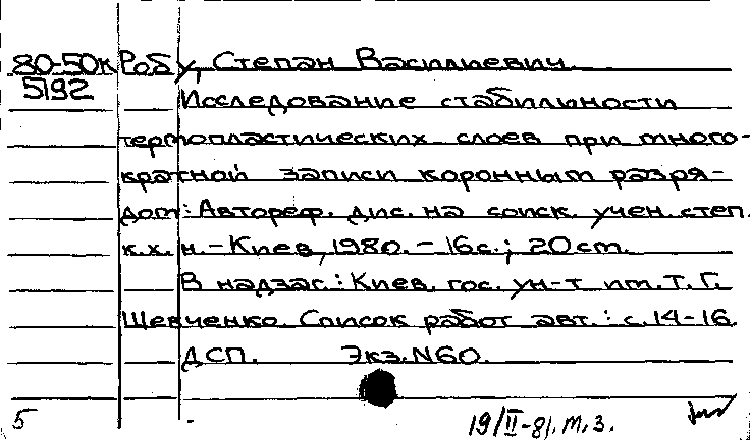 80-50к Робу, Степан Василиевич.
5192
Исследование стабильности
термопластических слоев при много-
кратной записи коронным разря-
дом: Автореф. дис. на соиск. учен. степ.
к.х.н. - Киев, 1980. - 16с.; 20 cm.
В надзаг.: Киев. гос. ун-т им. Т. Г.
Шевченко. Список работ авт.: с. 14-16.
ДСП. Экз. N60.
5 19/II-81. т. з.